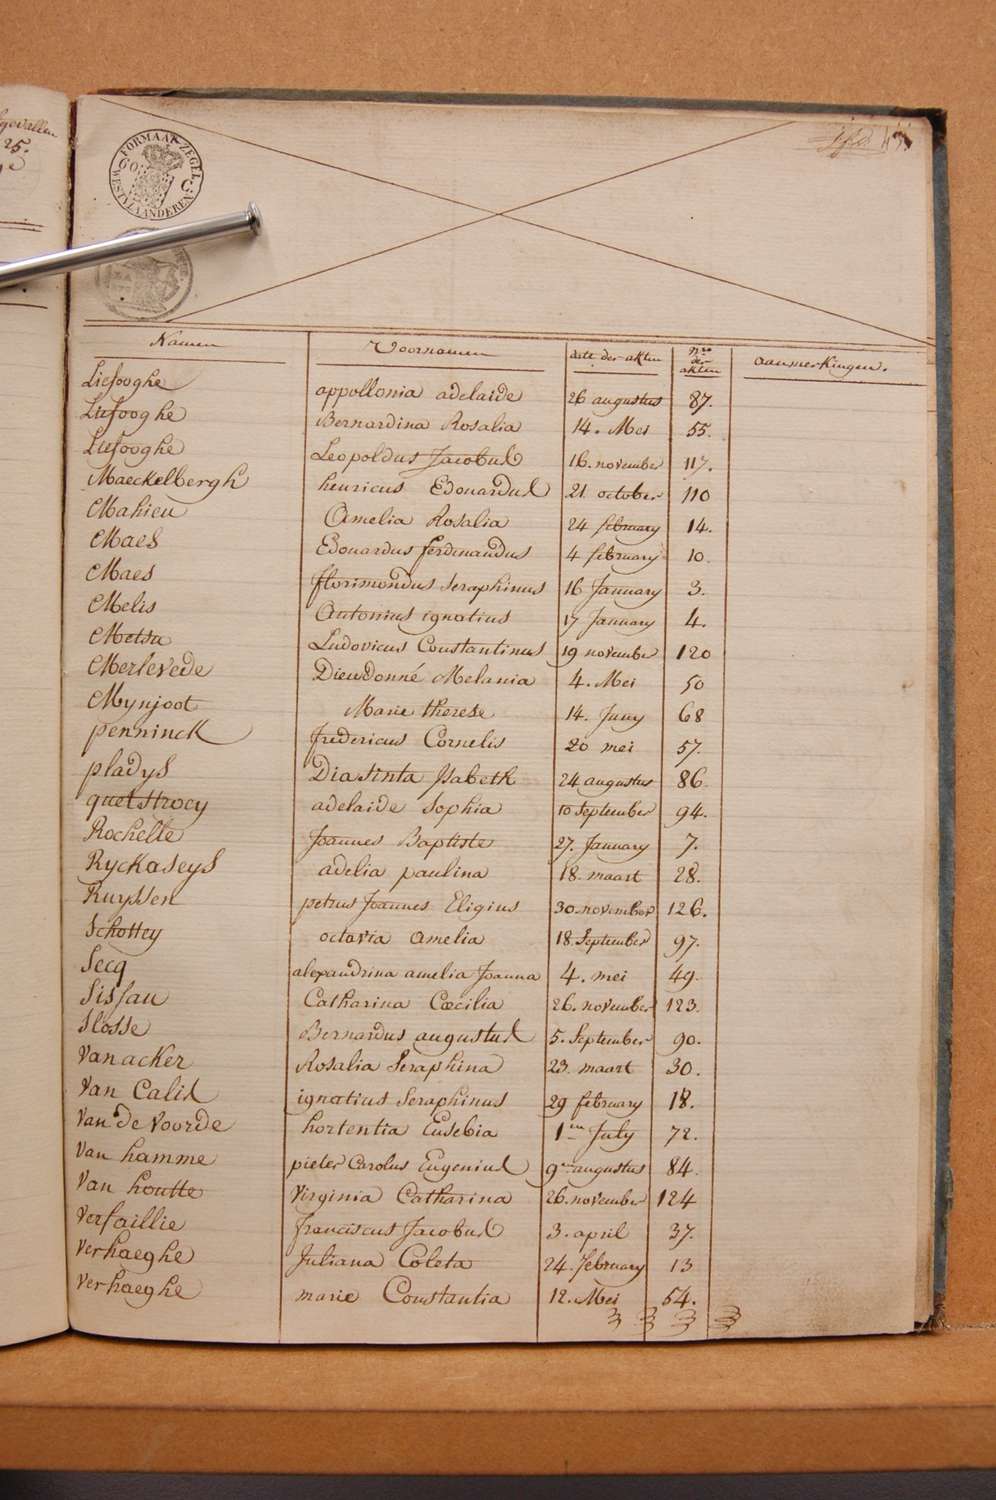 gevallen
25.
FORMAAT ZEGEL
60. C.
WEST VLAANDEREN
Namen Voornamen date der akten Nos der akten aanmerkingen.
Liefooghe appollonia adelaide 26 augustus 87.
Liefooghe Bernardina Rosalia 14. Mei 55.
Liefooghe Leopoldus Jacobus 16. november 117.
Maeckelbergh henricus Edouardus 21 october 110
Mahieu Amelia Rosalia 24 february 14.
Maes Edouardus ferdinandus 4 february 10.
Maes florimondus Seraphinus 16 January 3.
Melis Antonius ignatius 17 January 4.
Metsu Ludovicus Constantinus 19 november 120
Merlevede Dieudonné Melania 4. Mei 50
Mynjoot Marie therese 14. Juny 68
penninck fredericus Cornelis 20 mei 57.
pladys Diasinta Isabeth 24 augustus 86.
quetstroey adelaide Sophia 10 September 94.
Rochelle Joannes Baptiste 27. January 7.
Ryckaseys adelia paulina 18. maart 28.
Ruyssen petrus Joannes Eligius 30. november 126.
Schottey octavia amelia 18. September 97.
Secq alexandrina amelia Joanna 4. mei 49.
Sissau Catharina Cœcilia 26. november 123.
Slosse Bernardus augustus 5. September 90.
Van acker Rosalia Seraphina 23. maart 30.
Van Calis ignatius Seraphinus 29 february 18.
Van de Voorde hortentia Eusebia 1en July 72.
Van hamme pieter Carolus Eugenius 9en augustus 84.
Van houtte Virginia Catharina 26. november 124
Verfaillie franciscus Jacobus 3. april 37.
Verhaeghe Juliana Coleta 24. february 13
Verhaeghe marie Constantia 12. Mei 54.